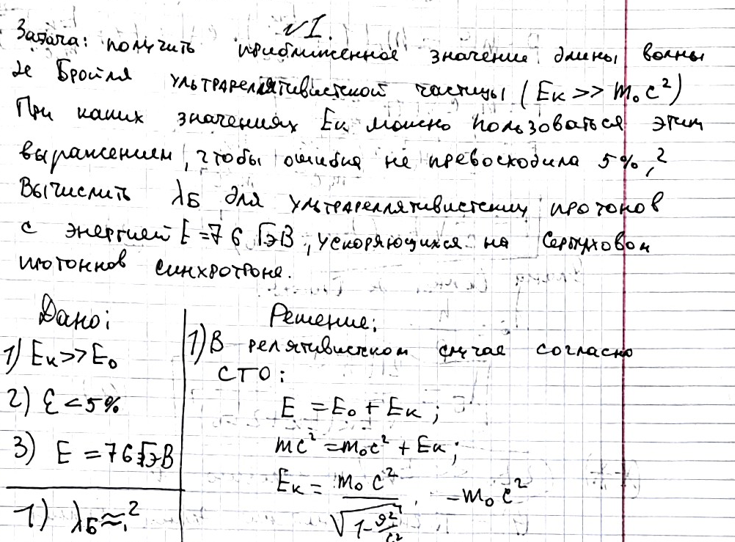 №1.
Задача: получить приближенное значение длины волны
де Бройля ультрарелятивистской частицы (Eк >> m₀c²)
При каких значениях Eк можно пользоваться этим
выражением, чтобы ошибка не превосходила 5%,?
Вычислить λБ для ультрареллятивистских протонов
с энергией E = 76 ГэВ, ускоряющихся на Серпуховом
протонном синхротроне.
Дано:
1) Eк >> E₀
2) ε < 5%
3) E = 76 ГэВ
1) λБ ≈ ?
Решение:
1) В релятивистском случае согласно
СТО:
E = E₀ + Eк;
mc² = m₀c² + Eк;
Eк = m₀c² / √(1 - υ²/c²) - m₀c²